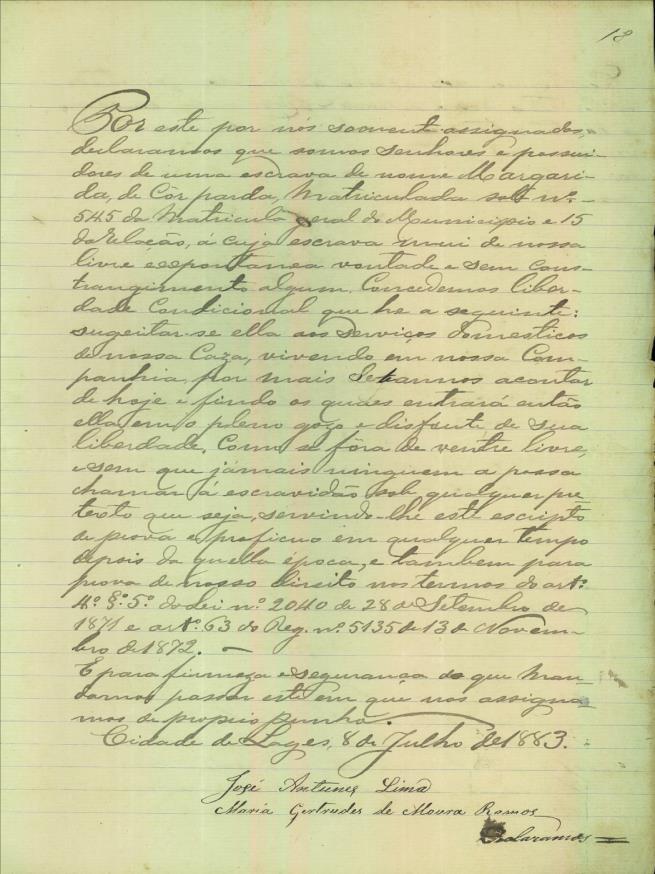 18
Por este por nós sooment assignados,
declaramos que somos Senhores e possui-
dores de uma escrava de nome Margari-
da, de Côr parda, Matriculada sob nº
545 da Matricula geral do Municipio e 15
da Relação, á cuja escrava mui de nossa
livre e espontanea vontade e sem cons-
trangimento algum, Concedemos liber-
dade Condicional que he a seguinte:
sugeitar-se ella aos Serviços domesticos
de nossa Caza, vivendo em nossa Com-
panhia, por mais Sete annos acontar
de hoje e findo os quaes entrará então
ella em o pleno gozo e disfrute de sua
liberdade, Como se fôra de ventre livre,
e sem que jámais ninguem a possa
chamar á escravidão sob qualquer pre
texto que seja, servindo-lhe este escripto
de prova e proficuo em qualquer tempo
depois da quella época, e tambem para
prova de nosso Direito nos termos do artº
4º §º 5º da Lei nº 2040 de 28 de Setembro de
1871 e artº 63 do Reg. nº 5135 de 13 de Novem-
bro de 1872. —
E para firmeza e segurança do que Man-
damos passar este em que nos assigna-
mos de proprio punho.
Cidade de Lages, 8 de Julho de 1883.
José Antunes Lima
Maria Gertrudes de Moura Ramos
Declaramos =